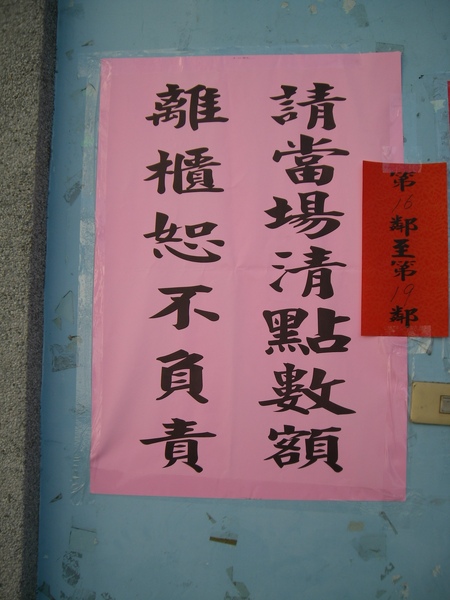 請當場清點數額
離櫃恕不負責
第16鄰至第19鄰